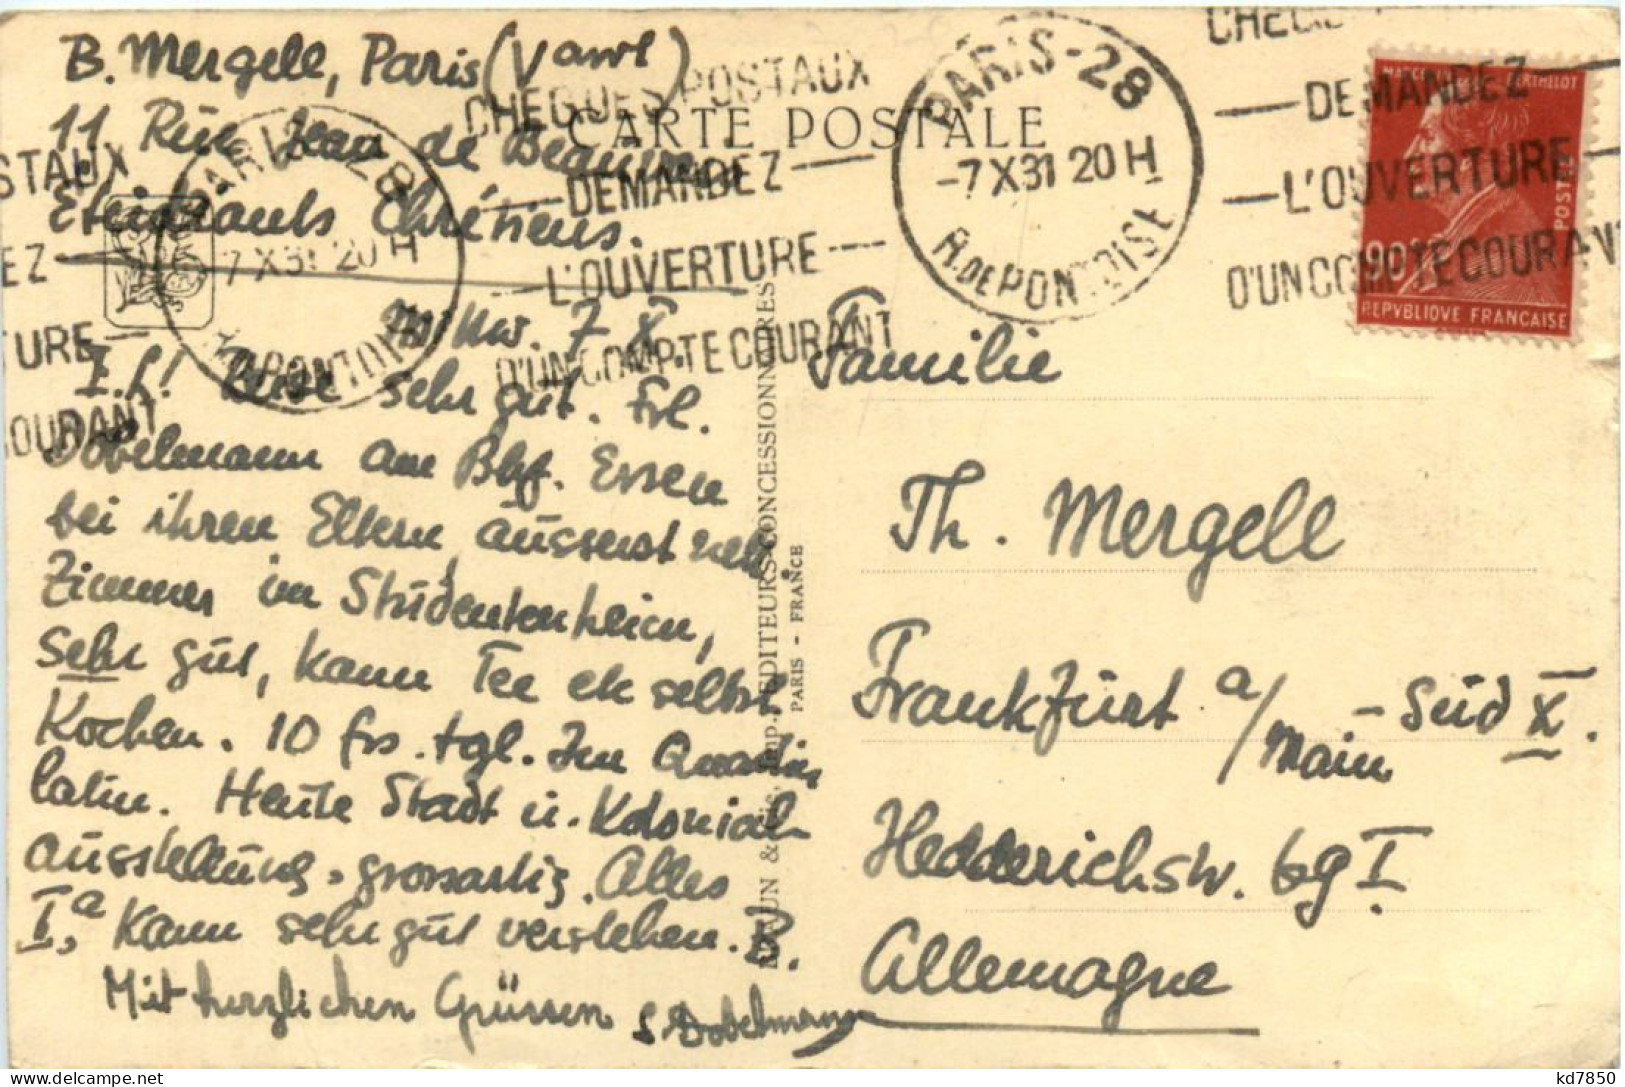 B. Mergell, Paris (V arr)
11 Rue Jean de Beauvais
Etudiants Chrétiens.
CARTE POSTALE
CHEQUES POSTAUX
DEMANDEZ
L'OUVERTURE
D'UN COMPTE COURANT
PARIS-28
-7 X 31 20 H
R. DE PONTOISE
CHEQUES
DEMANDEZ
L'OUVERTURE
D'UN COMPTE COURANT
MARCELIN BERTHELOT
POSTES
90c
REPVBLIQVE FRANCAISE
STAUX
EZ
TURE
COURANT
7 X 31 20 H
7. X.
I. L! Reise sehr gut. Frl.
Dobelmann am Bhf. Essen
bei ihren Eltern, äusserst nett.
Zimmer im Studentenheim,
sehr gut, kann Tee etc selbst
kochen. 10 frs. tgl. Im Quartier
latin. Heute Stadt u. Kolonial-
ausstellung. grossartig. Alles
I.a kann sehr gut verstehen. B.
Mit herzlichen Grüssen L Dobelmann
BRAUN & Cie, Imp. EDITEURS-CONCESSIONNAIRES
PARIS - FRANCE
Familie
Th. Mergell
Frankfurt a/Main - Süd X.
Hedderichstr. 69 I.
Allemagne
kd7850